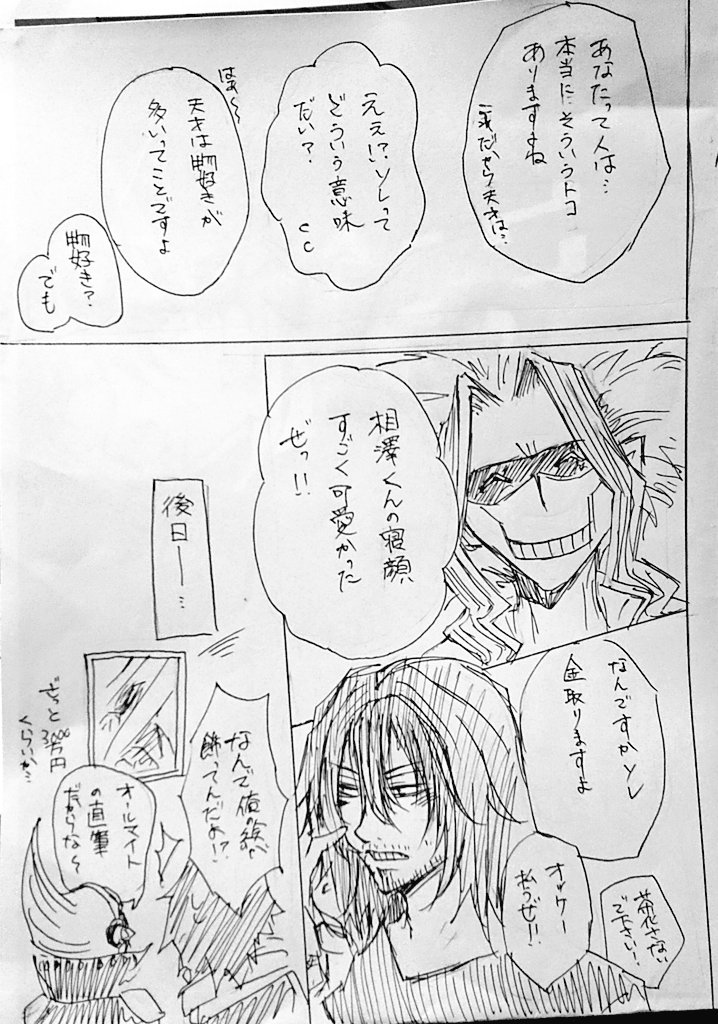 あなたって人は…
本当にそういうトコ
ありますよね
天才は…
ええ!?ソレって
どういう意味
だい?
はぁ~
天才は物好きが
多いってことですよ
物好き?
でも
相澤くんの寝顔
すごく可愛かった
ぜっ!!
なんですかソレ
金取りますよ
オッケー
払うぜ!!
茶化さない
で下さい!
後日――…
なんで俺の絵が
飾ってんだよ!?
オールマイト
の直筆
だからな~
ざっと
3000万円
くらいか…